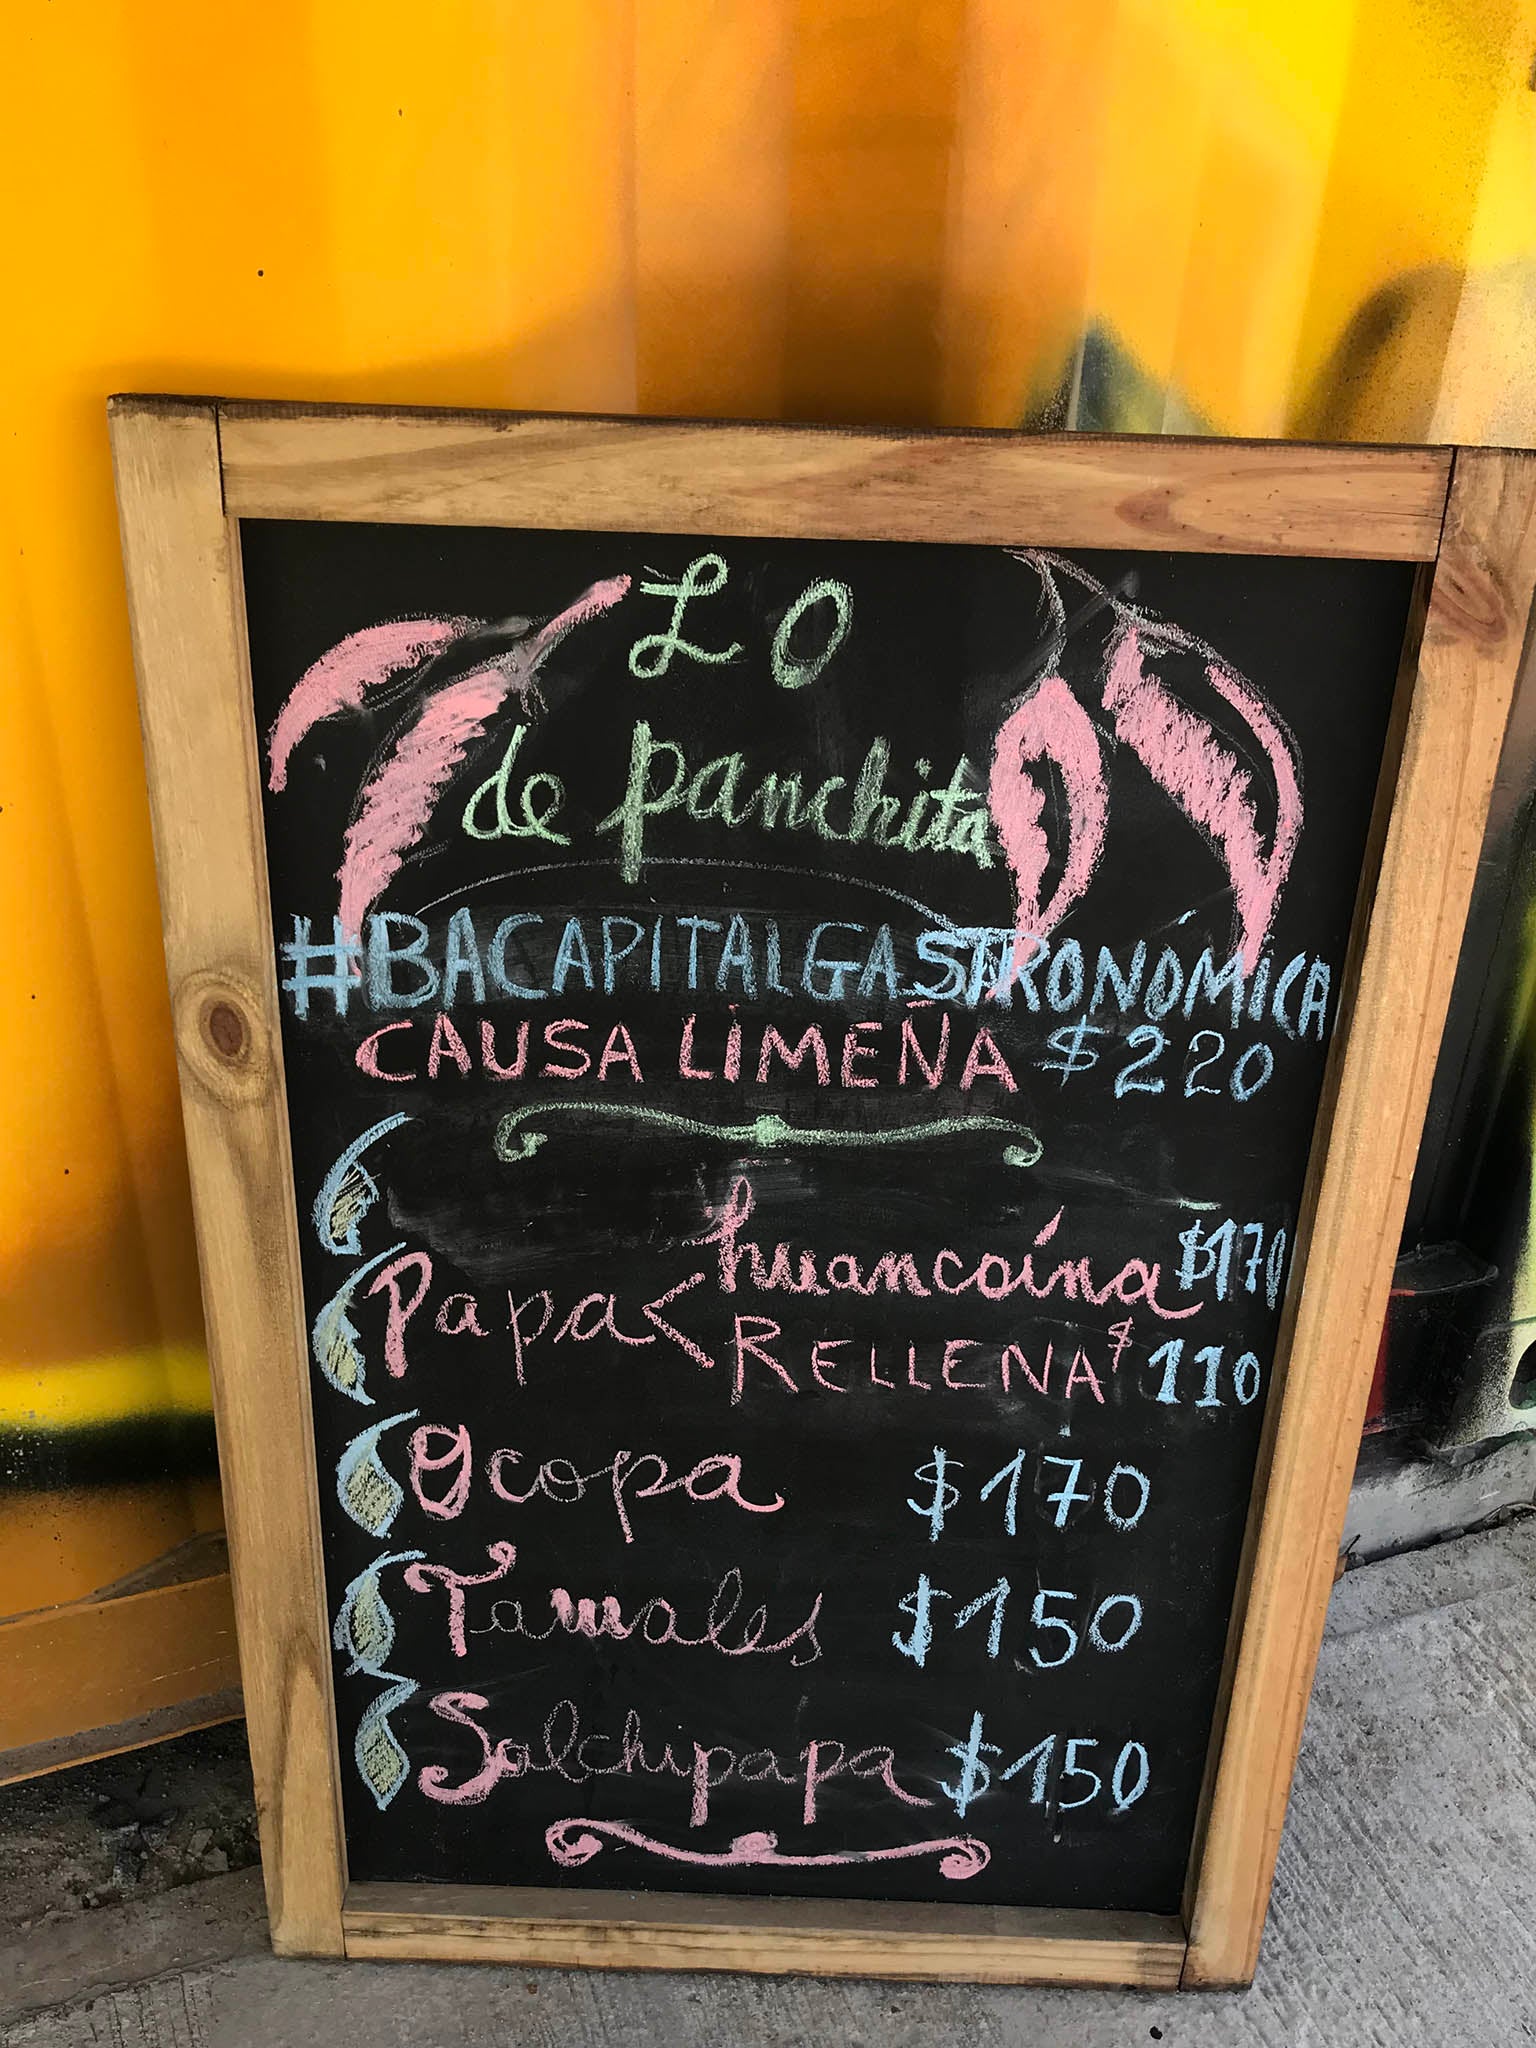 Lo
de panchita
#BACAPITALGASTRONÓMICA
CAUSA LIMEÑA $220
Papa < huancaína $170
RELLENA $110
Ocopa $170
Tamales $150
Salchipapa $150